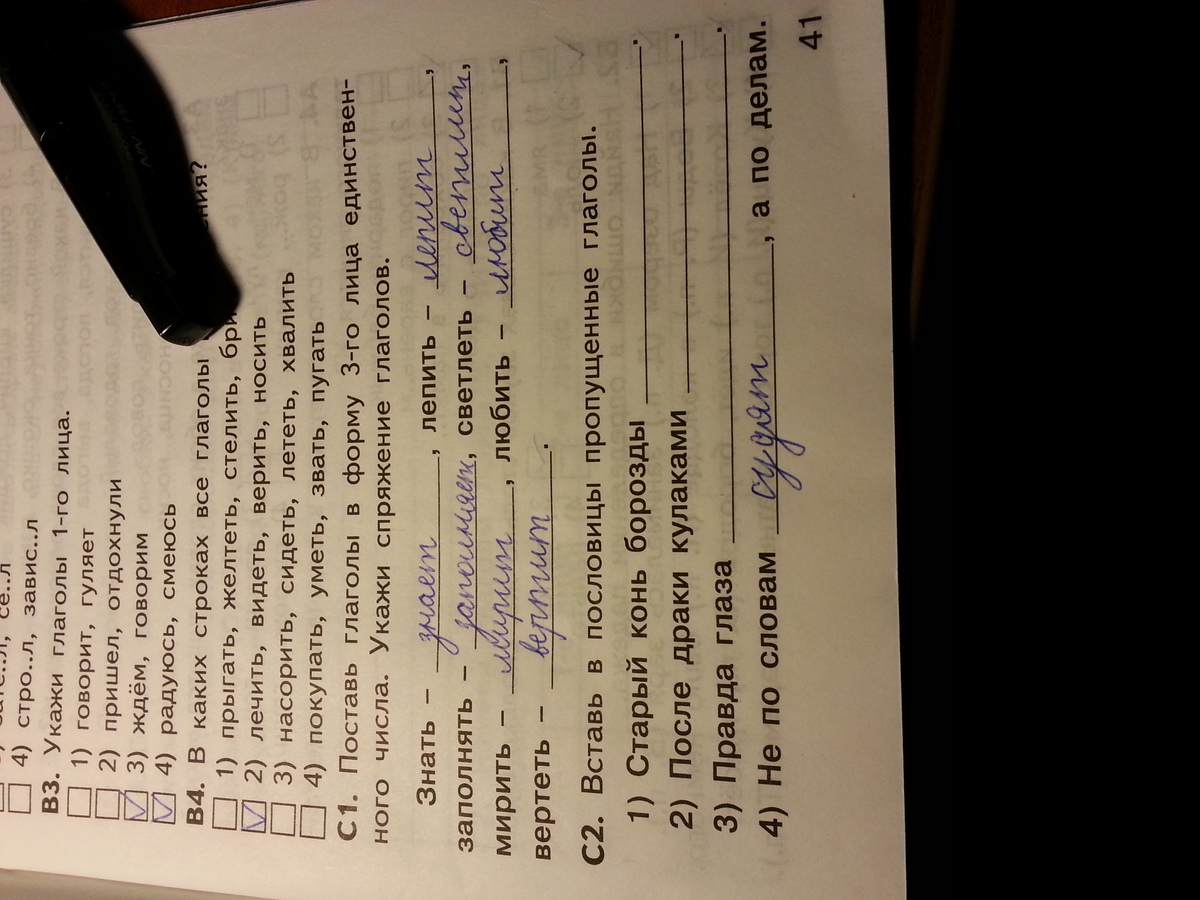 се..л
4) стро..л, завис..л
В3. Укажи глаголы 1-го лица.
1) говорит, гуляет
2) пришел, отдохнули
3) ждём, говорим
4) радуюсь, смеюсь
В4. В каких строках все глаголы ения?
1) прыгать, желтеть, стелить, бри
2) лечить, видеть, верить, носить
3) насорить, сидеть, лететь, хвалить
4) покупать, уметь, звать, пугать
С1. Поставь глаголы в форму 3-го лица единствен-
ного числа. Укажи спряжение глаголов.
Знать – знает, лепить – лепит,
заполнять – заполняет, светлеть – светлит,
мирить – мирит, любить – любит,
вертеть – вертит.
С2. Вставь в пословицы пропущенные глаголы.
1) Старый конь борозды ______.
2) После драки кулаками ______.
3) Правда глаза ______.
4) Не по словам судят, а по делам.
41